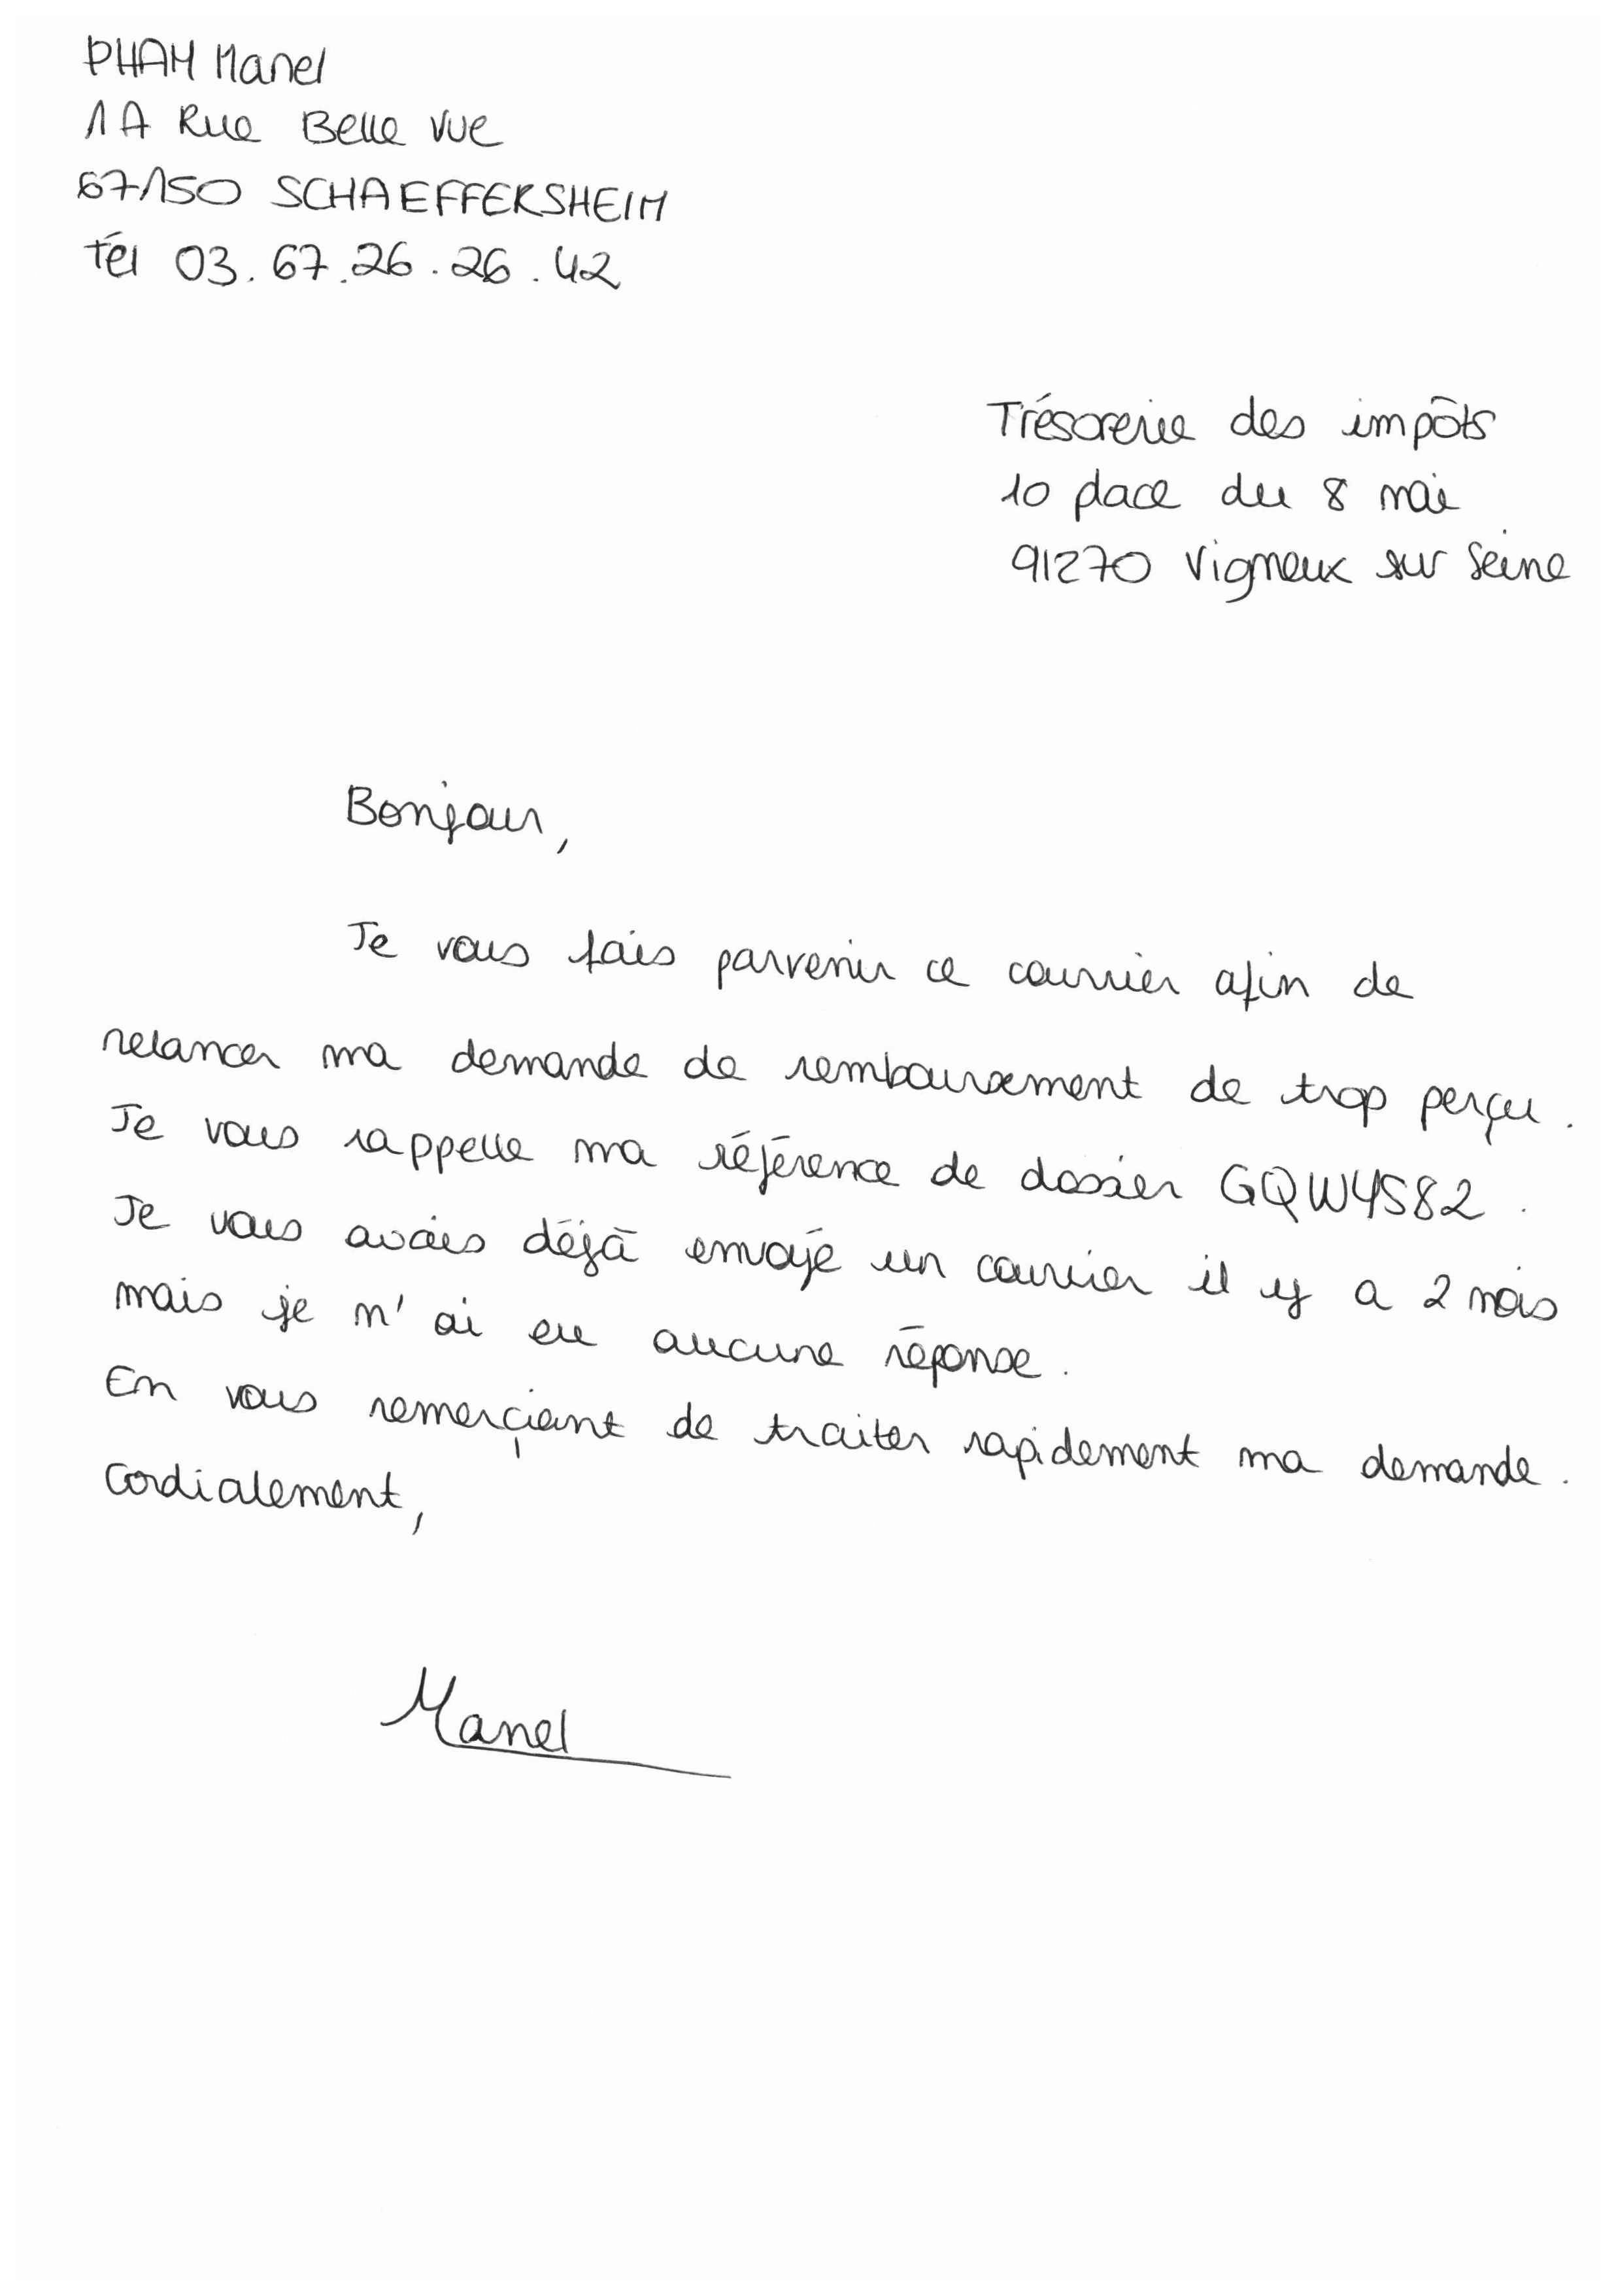 PHAM Manel
1A Rue Belle Vue
67150 SCHAEFFERSHEIM
tél 03.67.26.26.42
Trésorerie des impôts
10 place du 8 mai
91270 Vigneux sur Seine
Bonjour,
Je vous fais parvenir ce courrier afin de
relancer ma demande de remboursement de trop perçu.
Je vous rappelle ma référence de dossier GQWYS82.
Je vous avais déjà envoyé un courrier il y a 2 mois
mais je n'ai eu aucune réponse.
En vous remerçiant de traiter rapidement ma demande.
Cordialement,
Manel